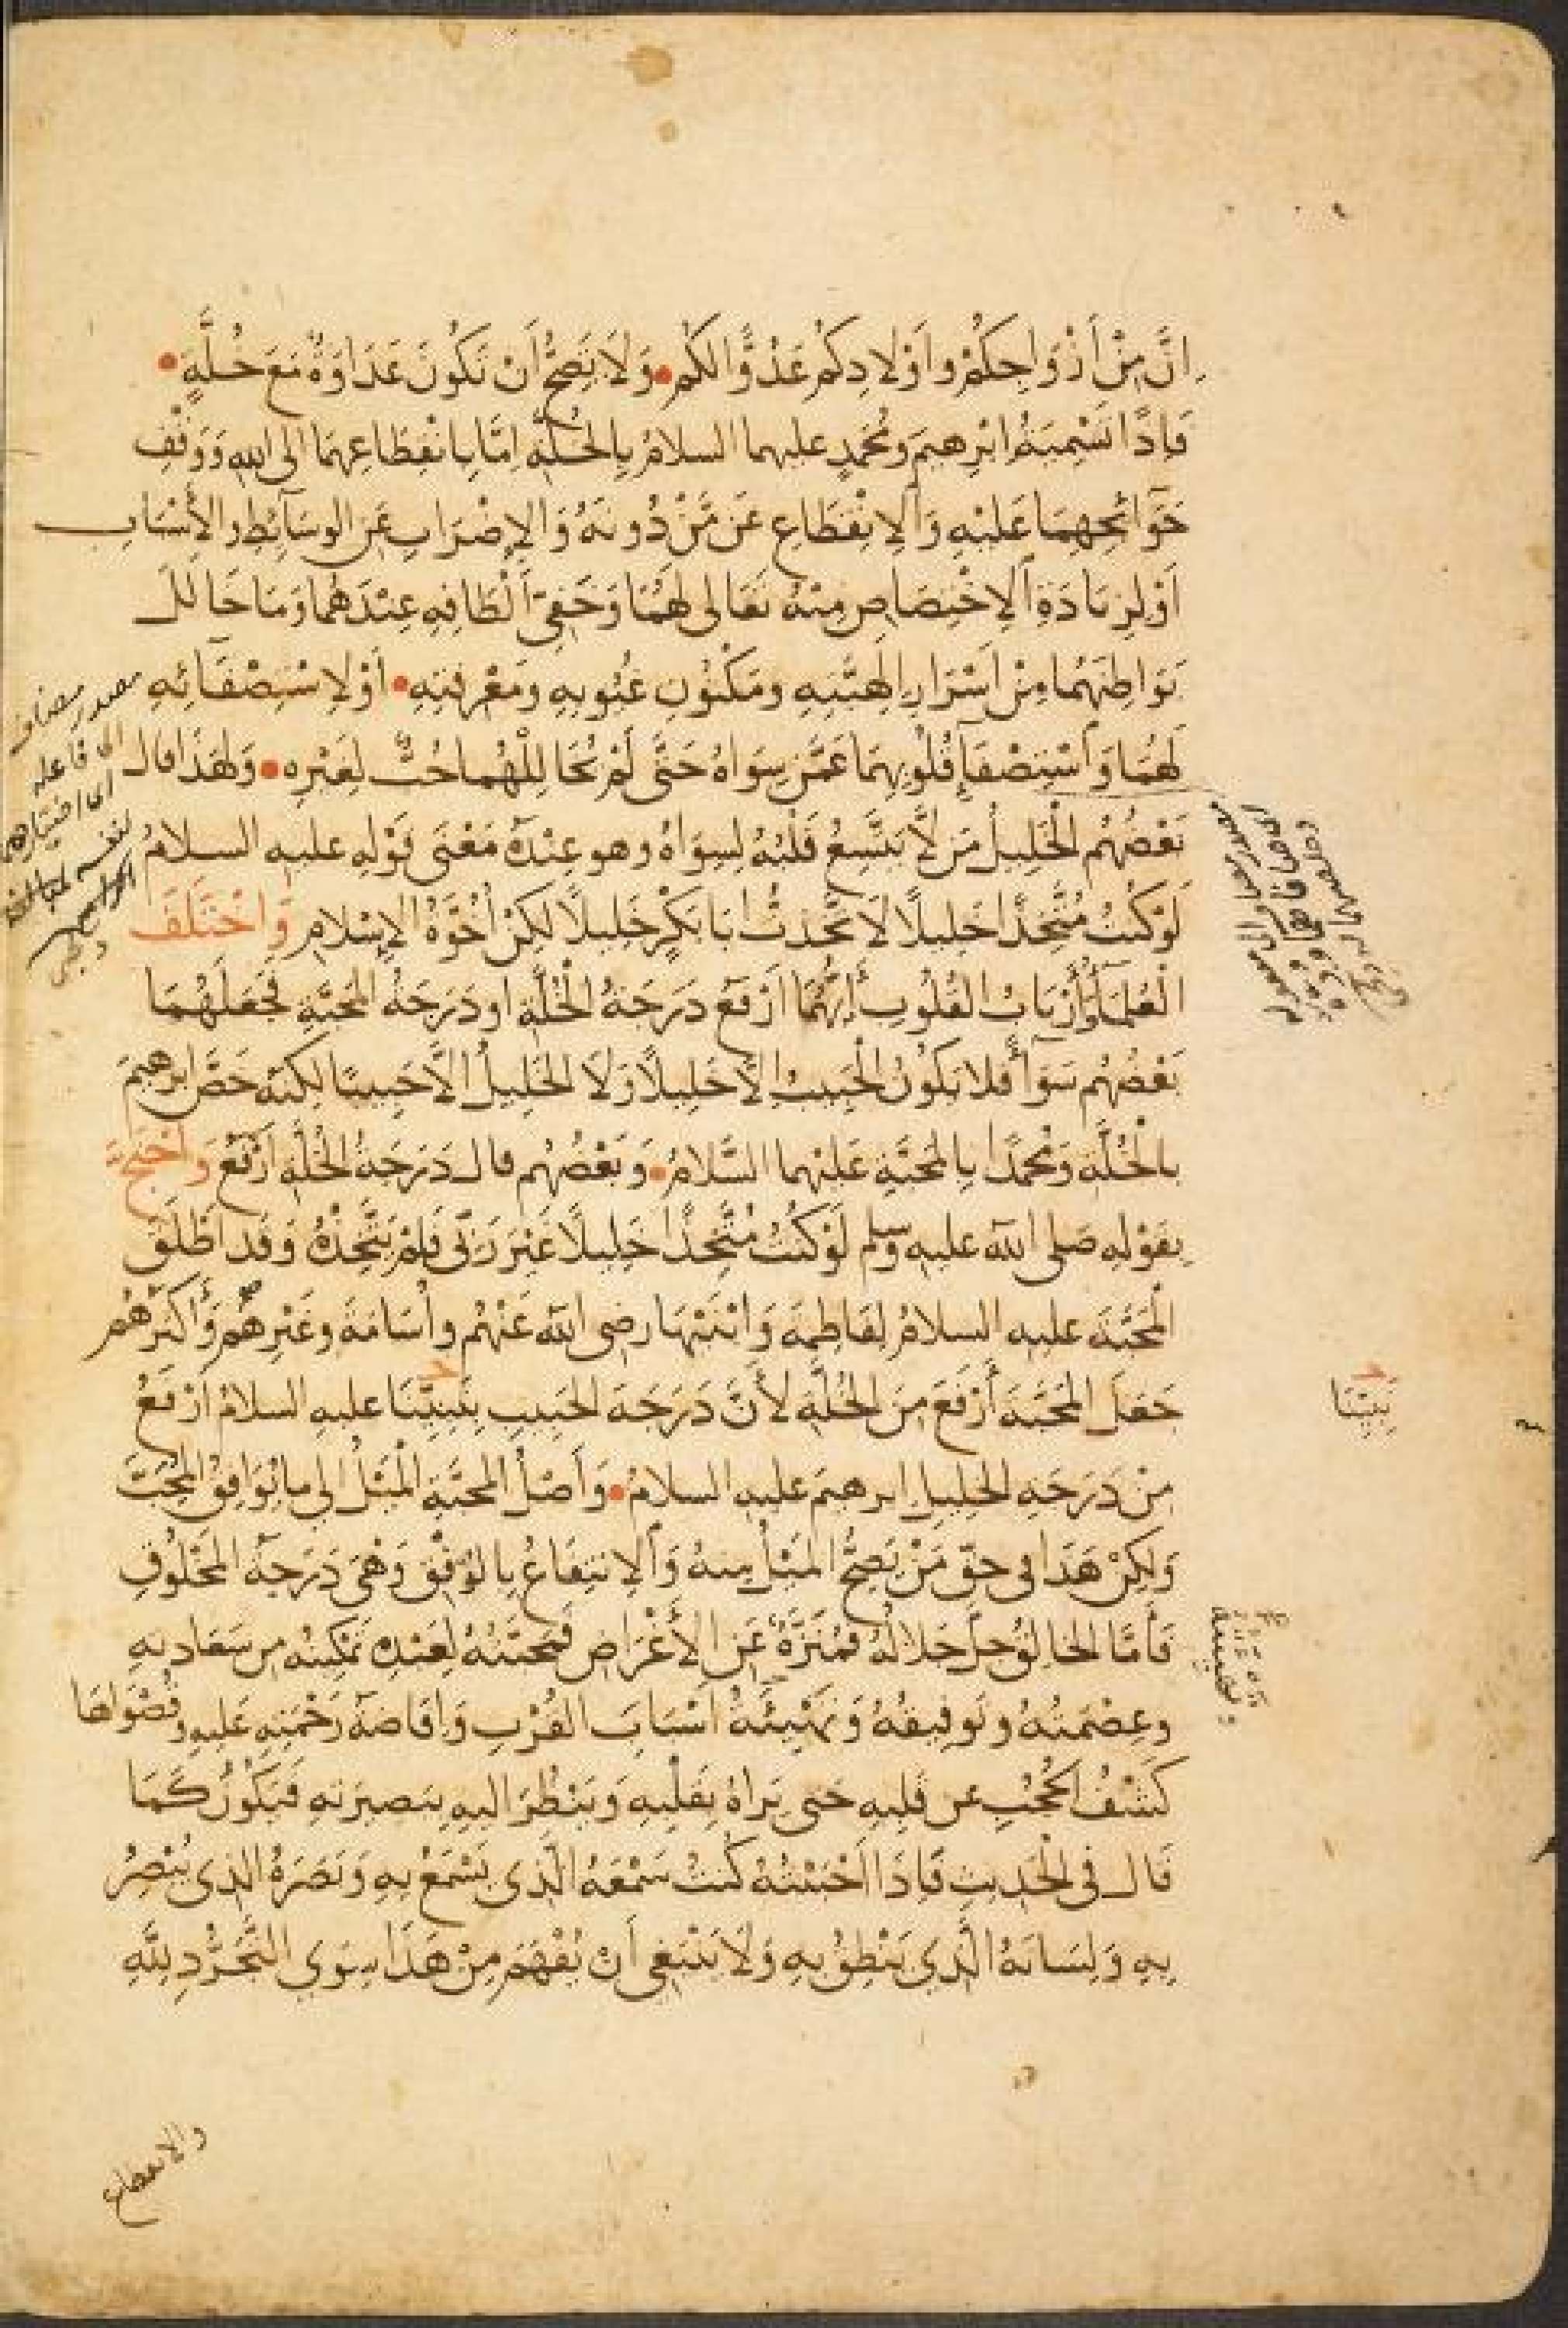 اِنَّ مِنْ اَزْوَاجِكُمْ وَاَوْلَادِكُمْ عَدُوًّا لَكُمْ • وَلَا يَصِحُّ اَنْ تَكُونَ عَدَاوَةٌ مَعَ خُلَّةٍ •
فَاِذًا تَسْمِيَةُ اِبْرٰهِيمَ وَمُحَمَّدٍ عليهما السلامُ بِالْخُلَّةِ اِمَّا بِانْقِطَاعِهِمَا اِلَى اللهِ وَوَقْفِ
حَوَائِجِهِمَا عَلَيْهِ وَالْاِنْقِطَاعِ عَنْ مَّنْ دُونَهُ وَالْاِضْرَابِ عَنِ الوسَآئِطِ والْاَسْبَابِ
اَوْ لِزِيَادَةِ الْاِخْتِصَاصِ مِنْهُ تَعَالى لَهُمَا وَخَفِيِّ اَلْطَافِهِ عِنْدَهُمَا وَمَا خَالَلَ
بَوَاطِنَهُمَا مِنْ اَسْرَارِ اِلٰهِيَّتِهِ ومَكْنُونِ غُيُوبِهِ ومَعْرِفَتِهِ • اَوْ لِاسْتِصْفَائِهِ
لَهُمَا وَاسْتِصْفَآءِ قُلُوبِهِمَا عَمَّنْ سِوَاهُ حَتَّى لَمْ يُخَالِلْهُمَا حُبٌّ لِغَيْرِهِ • وَلِهٰذَا قال
بَعْضُهُم الْخَلِيلُ مَن لَّا يَتَّسِعُ قَلْبُهُ لِسِوَاهُ وهو عِنْدَهُ مَعْنَى قَوْلِهِ عليهِ السلامُ
لَوْ كُنْتُ مُتَّخِذًا خَلِيلًا لَاتَّخَذْتُ اَبَا بَكْرٍ خَلِيلًا لَكِنْ اُخُوَّةُ الْاِسْلَامِ وَاخْتَلَفَ
الْعُلَمَآءُ اَرْبَابُ القُلُوبِ اَيُّهُمَا اَرْفَعُ دَرَجَةُ الْخُلَّةِ اَو دَرَجَةُ الْمَحَبَّةِ فَجَعَلَهُمَا
بَعْضُهُم سَوَآءً فلا يَكُونُ الْحَبِيبُ اِلَّا خَلِيلًا وَلَا الْخَلِيلُ اِلَّا حَبِيبًا لكِنّه خَصَّ اِبْرٰهِيمَ
بِالْخُلَّةِ وَمُحَمَّدًا بِالْمَحَبَّةِ عَلَيْهِما السَّلَامُ • وَبَعْضُهُم قال دَرَجَةُ الْخُلَّةِ اَرْفَعُ وَاحْتَجَّ
بِقَوْلِهِ صَلى الله عليهِ وسلم لَوْ كُنْتُ مُتَّخِذًا خَلِيلًا غَيْرَ رَبِّى فَلَمْ يَتَّخِذْهُ وَقَد اَطْلَقَ
الْمَحَبَّةَ عليه السلامُ لِفَاطِمَةَ وَابْنَيْهَا رضى الله عَنْهُم واُسَامَةَ وغَيْرِهُمْ وَاَكْثَرُهُم
جَعَلَ الْمَحَبَّةَ أَرْفَعَ مِنَ الْخُلَّةِ لِأَنَّ دَرَجَةَ الْحَبِيبِ نَبِيِّنَا عليهِ السلامُ اَرْفَعُ
نَبِيِّنَا
مِنْ دَرَجَةِ الْخَلِيلِ اِبرهيمَ عليهِ السلامُ • وَاَصْلُ الْمَحَبَّةِ الْمَيْلُ اِلى ما يُوَافِقُ الْمُحِبَّ
وَلكِنْ هَذَا فى حَقّ مَنْ يَصِحُّ الْمَيْلُ مِنهُ وَالْاِنتِفَاعُ بِالْوَفْقِ وَهْىَ دَرَجَةُ الْمَخْلُوقِ
فَاَمَّا الْخَالِقُ جلّ جَلالُهُ فَمُنَزَّهٌ عَنِ الْاَغْرَاضِ فَمَحَبَّتُهُ لِعَبْدِهِ تَمْكِينُهُ مِن سَعَادَتِهِ
وعِصْمَتُهُ وتَوفِيقُهُ وَتَهْيِئَةُ اَسْبَابِ القُرْبِ وَاِفَاضَةُ رَحْمَتِهِ عَلَيهِ وقُصْوَاهَا
كَشْفُ الْحُجُبِ عن قَلبِهِ حَتى يَرَاهُ بِقَلْبِهِ وَيَنْظُرَ اليهِ بِبَصيرَتِهِ فَيَكُونُ كَمَا
قَال فى الْحَدِيثِ فَاِذَا اَحْبَبْتُهُ كُنتُ سَمْعَهُ الَّذى يَسْمَعُ بِهِ وَبَصَرَهُ الذِى يُبْصِرُ
بِهِ وَلِسَانَهُ الَّذِى يَنْطِقُ بِهِ وَلَا يَنْبَغِى اَنْ يُفْهَمَ مِنْ هَذَا سِوَى التَّجَرُّدِ لِلّهِ
مصدر مضاف
الى فاعله
والانقطاع